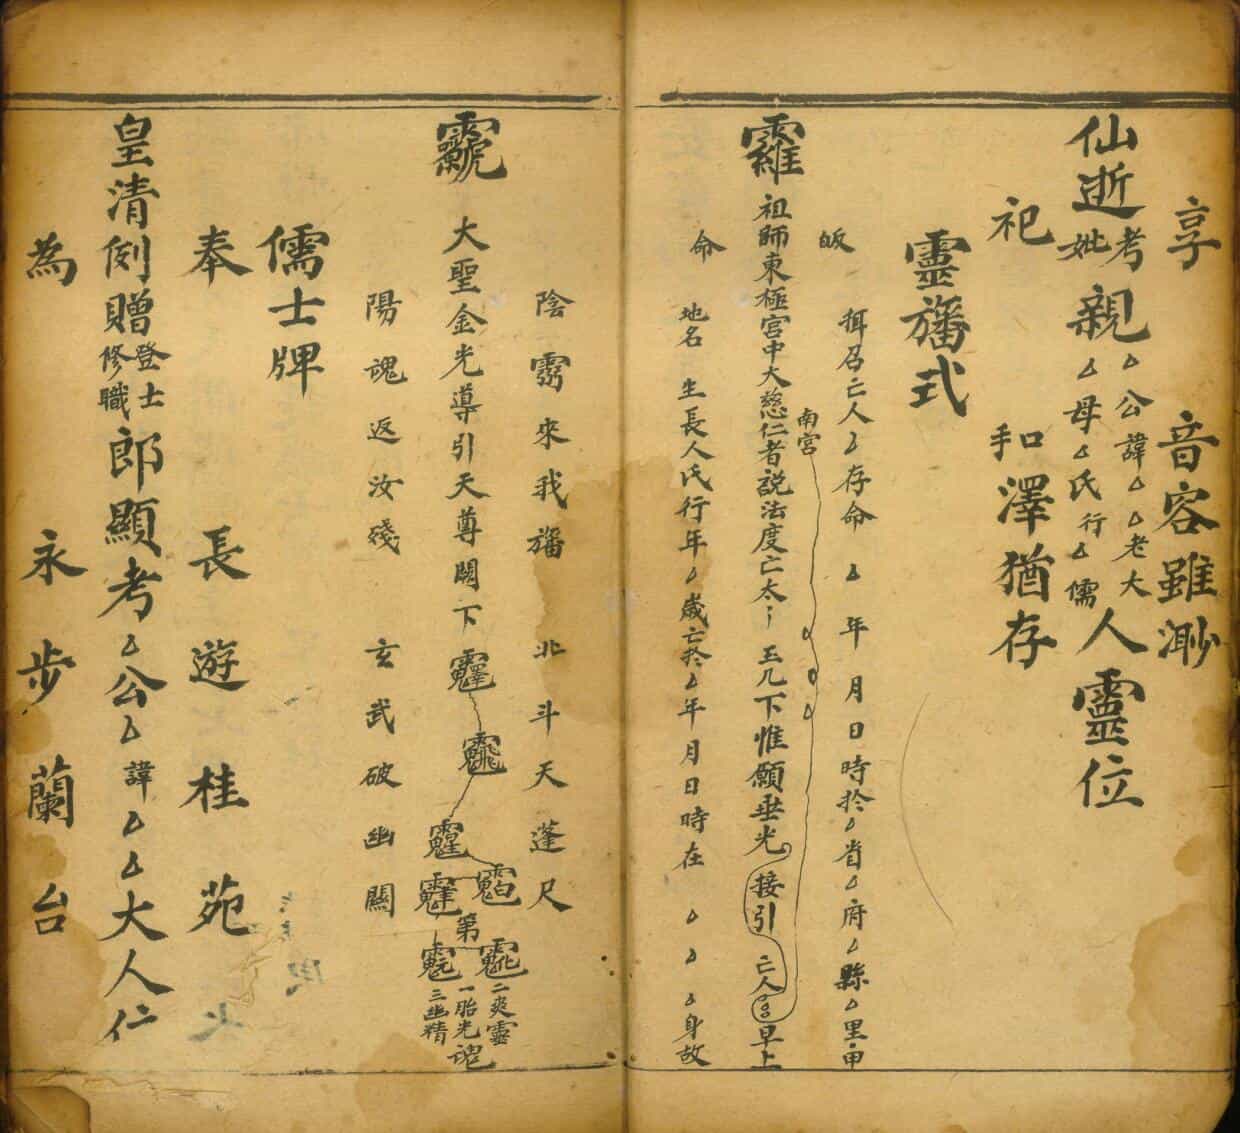 享　音容雖渺
仙逝考妣親△公諱△△老大△母△氏行△儒人靈位
祀　和澤猶存
靈旛式
拘召亡人△存命△年月日時於△省△府△縣△里甲
皈
祖師東極宮中大慈仁者說法度亡太〻玉几下惟願垂光接引亡人早上
南宮
命
地名生長人氏行年△歲亡於△年月日時在△△△身故
陰靈來我旛　北斗天蓬尺
大聖金光導引天尊闕下
第一胎光魂二爽靈三幽精
陽魂返汝殘　玄武破幽關
儒士牌
奉　長遊桂苑
皇清例贈登士修職郎顯考△公△諱△△大人仁
為　永步蘭台